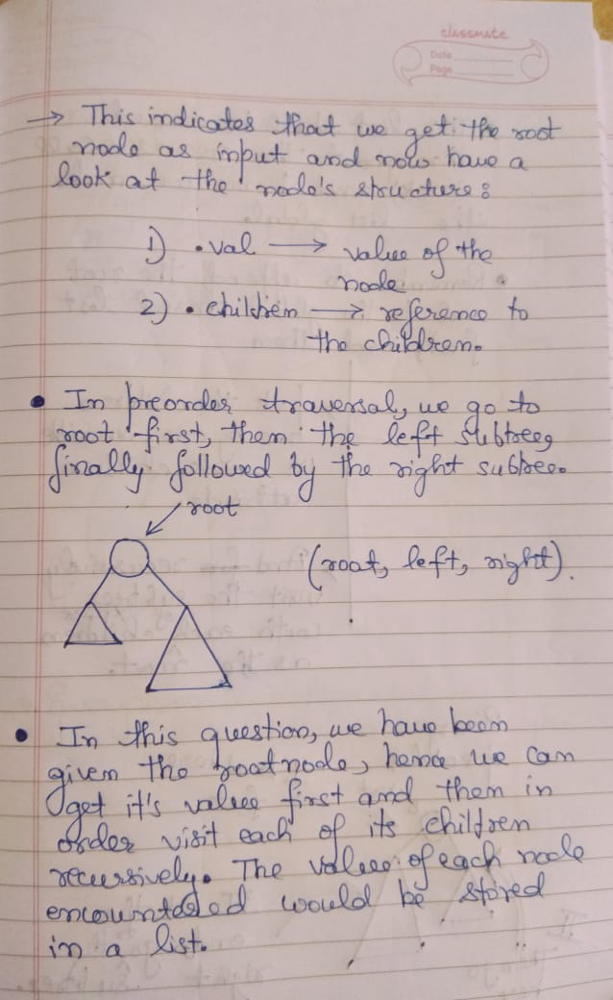 classmate
Date
Page
→ This indicates that we get the root
node as input and now have a
look at the node's structure:
1) .val → value of the
node.
2) .children → reference to
the children.
• In preorder traversal, we go to
root first, then the left subtree,
finally followed by the right subtree.
root
(root, left, right).
• In this question, we have been
given the rootnode, hence we can
get it's value first and then in
order visit each of its children
recursively. The value of each node
encountered would be stored
in a list.